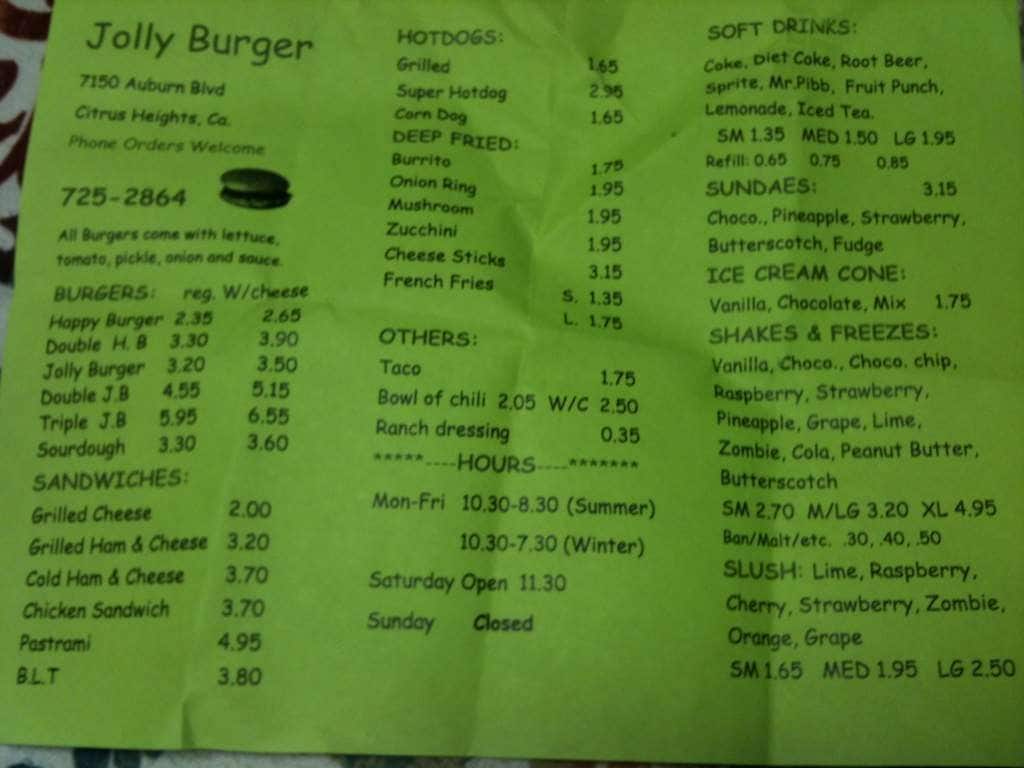 Jolly Burger
7150 Auburn Blvd
Citrus Heights, Ca.
Phone Orders Welcome
725-2864
All Burgers come with lettuce,
tomato, pickle, onion and sauce.
BURGERS: reg. W/cheese
Happy Burger 2.35 2.65
Double H. B 3.30 3.90
Jolly Burger 3.20 3.50
Double J.B 4.55 5.15
Triple J.B 5.95 6.55
Sourdough 3.30 3.60
SANDWICHES:
Grilled Cheese 2.00
Grilled Ham & Cheese 3.20
Cold Ham & Cheese 3.70
Chicken Sandwich 3.70
Pastrami 4.95
B.L.T 3.80
HOTDOGS:
Grilled 1.65
Super Hotdog 2.95
Corn Dog 1.65
DEEP FRIED:
Burrito 1.75
Onion Ring 1.95
Mushroom 1.95
Zucchini 1.95
Cheese Sticks 3.15
French Fries S. 1.35
L. 1.75
OTHERS:
Taco 1.75
Bowl of chili 2.05 W/C 2.50
Ranch dressing 0.35
*****----HOURS----*******
Mon-Fri 10.30-8.30 (Summer)
10.30-7.30 (Winter)
Saturday Open 11.30
Sunday Closed
SOFT DRINKS:
Coke, Diet Coke, Root Beer,
Sprite, Mr.Pibb, Fruit Punch,
Lemonade, Iced Tea.
SM 1.35 MED 1.50 LG 1.95
Refill: 0.65 0.75 0.85
SUNDAES: 3.15
Choco., Pineapple, Strawberry,
Butterscotch, Fudge
ICE CREAM CONE:
Vanilla, Chocolate, Mix 1.75
SHAKES & FREEZES:
Vanilla, Choco., Choco. chip,
Raspberry, Strawberry,
Pineapple, Grape, Lime,
Zombie, Cola, Peanut Butter,
Butterscotch
SM 2.70 M/LG 3.20 XL 4.95
Ban/Malt/etc. .30, .40, .50
SLUSH: Lime, Raspberry,
Cherry, Strawberry, Zombie,
Orange, Grape
SM 1.65 MED 1.95 LG 2.50